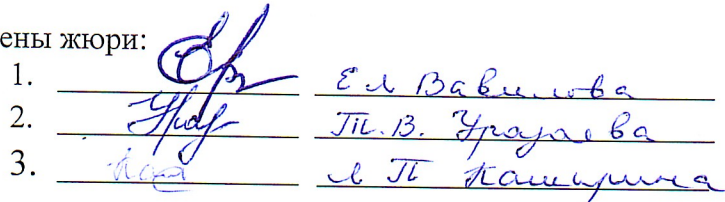 ены жюри:
1. Е Л Вавилова
2. Т.В. Уразаева
3. Л П Каширина